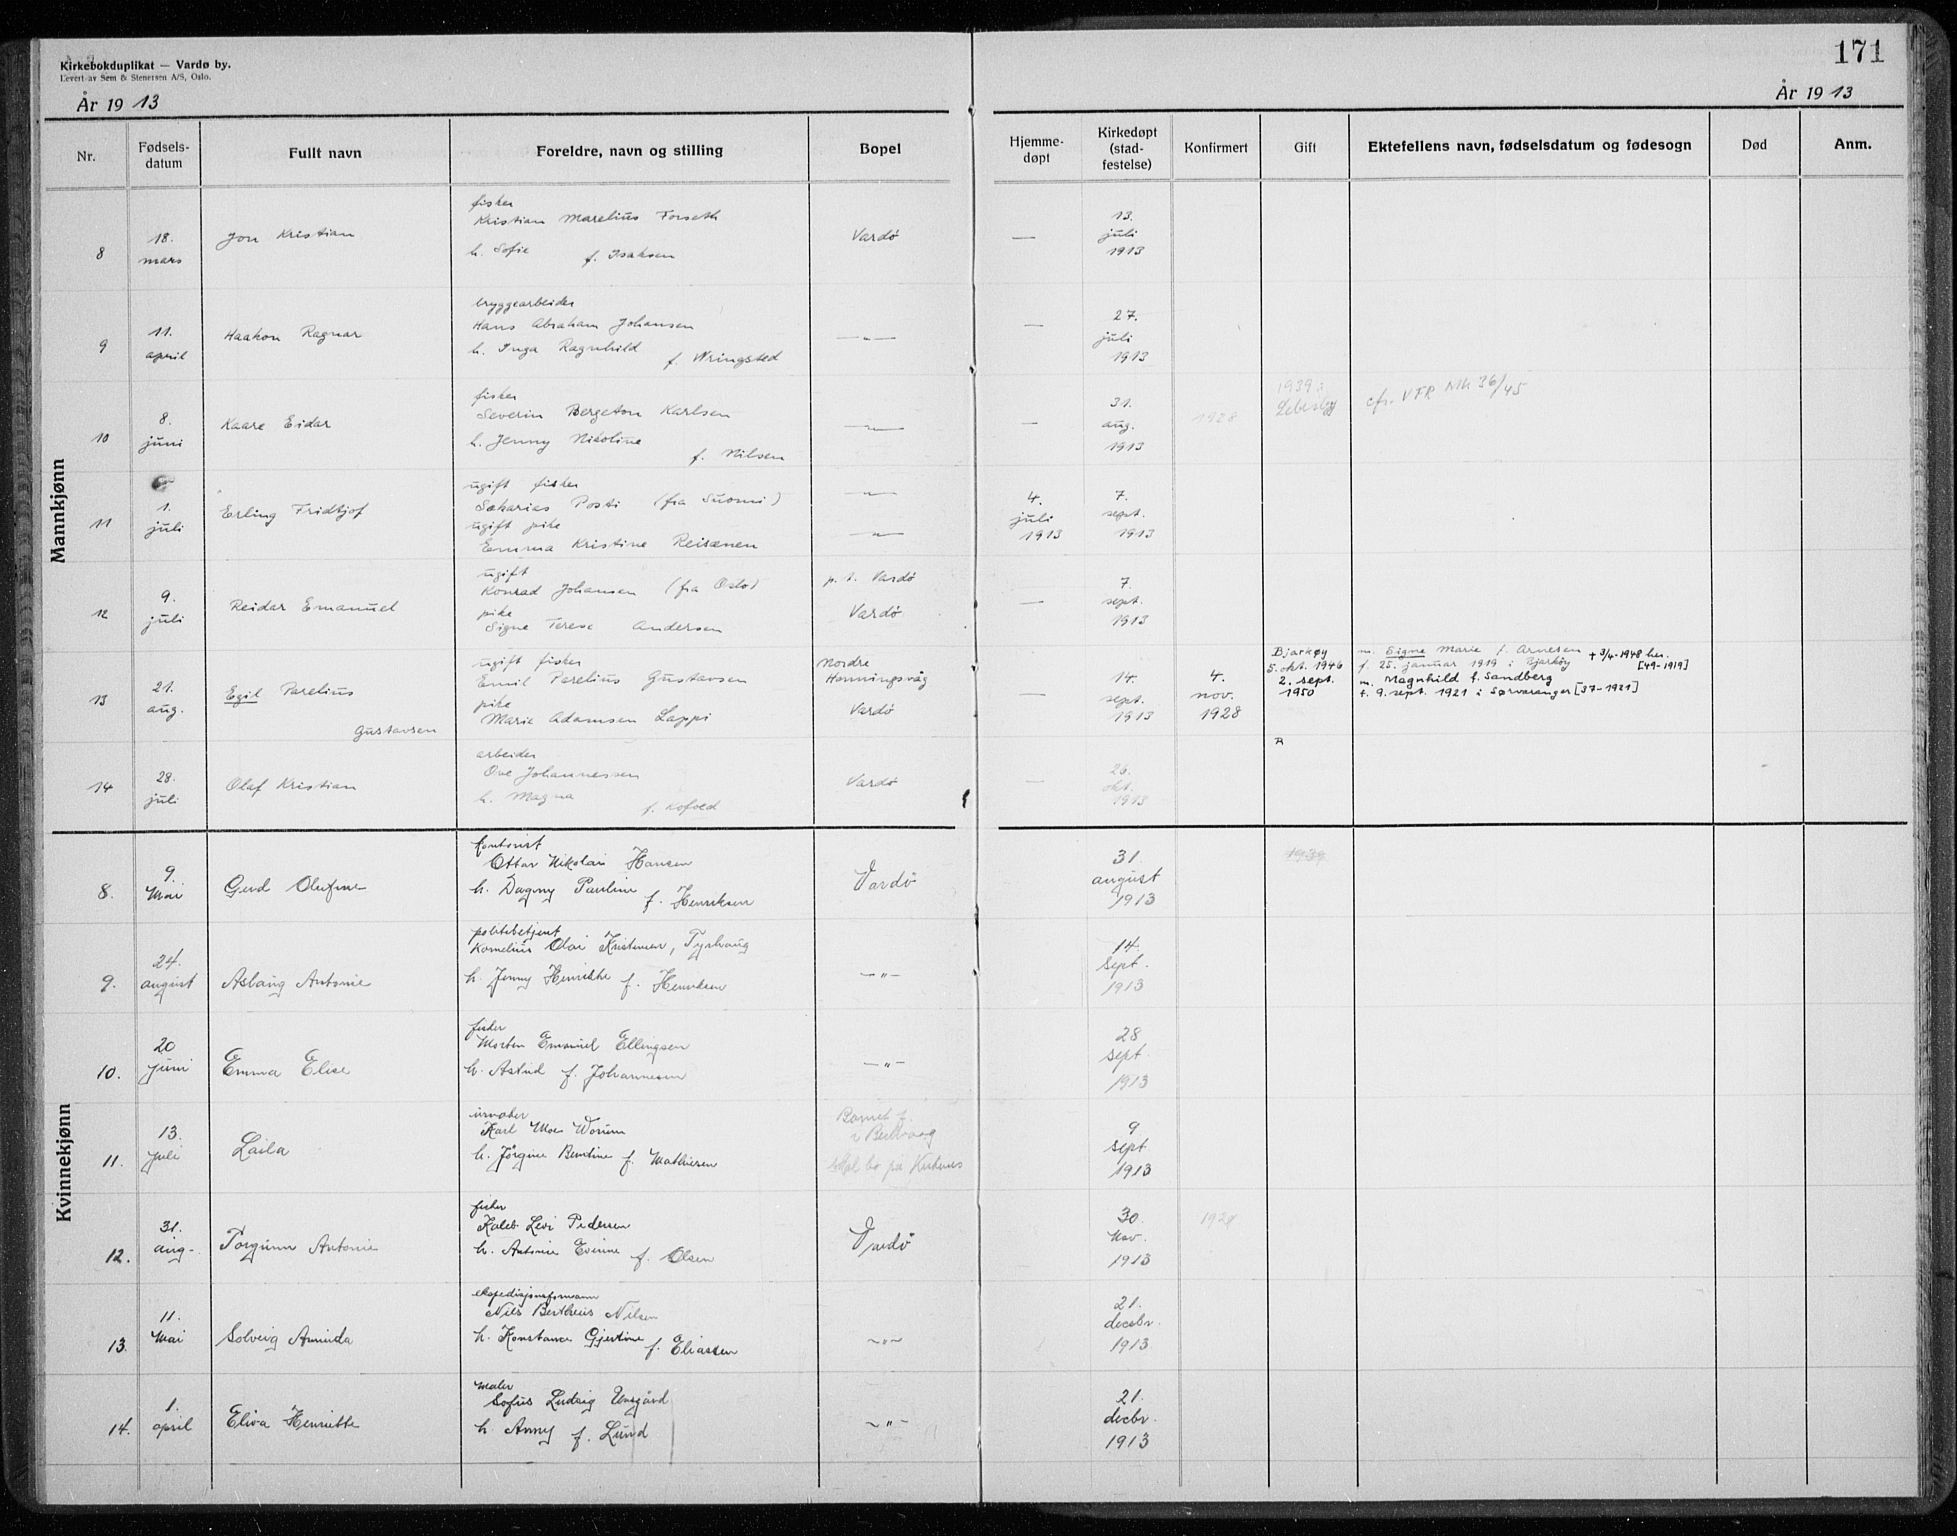 Kirkebokduplikat — Vardø by.
Levert av Sem & Stenersen A/S, Oslo.
171
År 19 13
År 19 13
Nr.
Fødsels-
datum
Fullt navn
Foreldre, navn og stilling
Bopel
Hjemme-
døpt
Kirkedøpt
(stad-
festelse)
Konfirmert
Gift
Ektefellens navn, fødselsdatum og fødesogn
Død
Anm.
Mannkjønn
8
18.
mars
Jon Kristian
fisker
Kristian Marelius Forseth
h. Sofie f. Isaksen
Vardø
—
13.
juli
1913
9
11.
april
Haakon Ragnar
bryggearbeider
Hans Abraham Johansen
h. Inga Ragnhild f. Wringsted
—"—
—
27.
juli
1913
10
8.
juni
Kaare Eidar
fisker
Severin Bergeton Karlsen
h. Jenny Nikoline
f. Nilsen
—"—
—
31.
aug.
1913
1928
1939 i
Lebesby
cfr. VFR Mk 36/45
11
1.
juli
Erling Fridtjof
ugift fisker
Sakarias Posti (fra Suomi)
ugift pike
Emma Kristine Reisænen
—"—
—"—
4.
juli
1913
7.
sept.
1913
12
9.
juli
Reidar Emanuel
ugift
Konrad Johansen (fra Oslo)
pike
Signe Terese Andersen
p. t. Vardø
Vardø
—
7.
sept.
1913
13
21.
aug.
Egil Parelius
Gustavsen
ugift fisker
Emil Parelius Gustavsen
pike
Marie Adamsen Lappi
Nordre
Honningsvåg
Vardø
—
14.
sept.
1913
4.
nov.
1928
Bjarkøy
5. okt. 1946
2. sept.
1950
m. Signe Marie f. Arnesen + 3/4-1948 her.
f. 25. januar 1919 i Bjarkøy [49-1919]
m. Magnhild f. Sandberg
f. 9. sept. 1921 i Sørvaranger [37-1921]
14
28.
juli
Olaf Kristian
arbeider
Ove Johannessen
h. Magna
f. Kofoed
Vardø
—
26.
okt.
1913
R
Kvinnekjønn
8.
9.
Mai
Gerd Olufine
kontorist
Ottar Nikolai Hansen
h. Dagny Pauline
f. Henriksen
Vardø
31.
august
1913
1939
9.
24.
august
Aslaug Antonie
politibetjent
Kornelius Olai Kristensen, Tyshaug
h. Jenny Henrikke f. Henriksen
—"—
14.
Sept.
1913
10.
20
juni
Emma Elise
fisker
Morten Emanuel Ellingsen
h. Astrid f. Johannesen
—"—
28
sept.
1913
11.
13.
juli
Laila
urmaker
Karl Moe Worum
h. Jörgine Bentine f. Mathisen
Barnet f.
i Berlevaag
skal bo på Kirkenes
9
sept.
1913
12.
31.
aug.
Torgunn Antonie
fisker
Kaleb Levi Pedersen
h. Antonie Evine f. Olsen
Vardø
30.
Nov.
1913
1928
13.
11.
Mai
Solveig Aminda
ekspedisjonsformann
Nils Bertheus Nilsen
h. Konstance Gjertine
f. Eliassen
—"—
21.
decebr.
1913
14.
1.
april
Eliva Henriette
maler
Sofus Ludvig
h. Anny f. Lund
—"—
21.
decbr.
1913